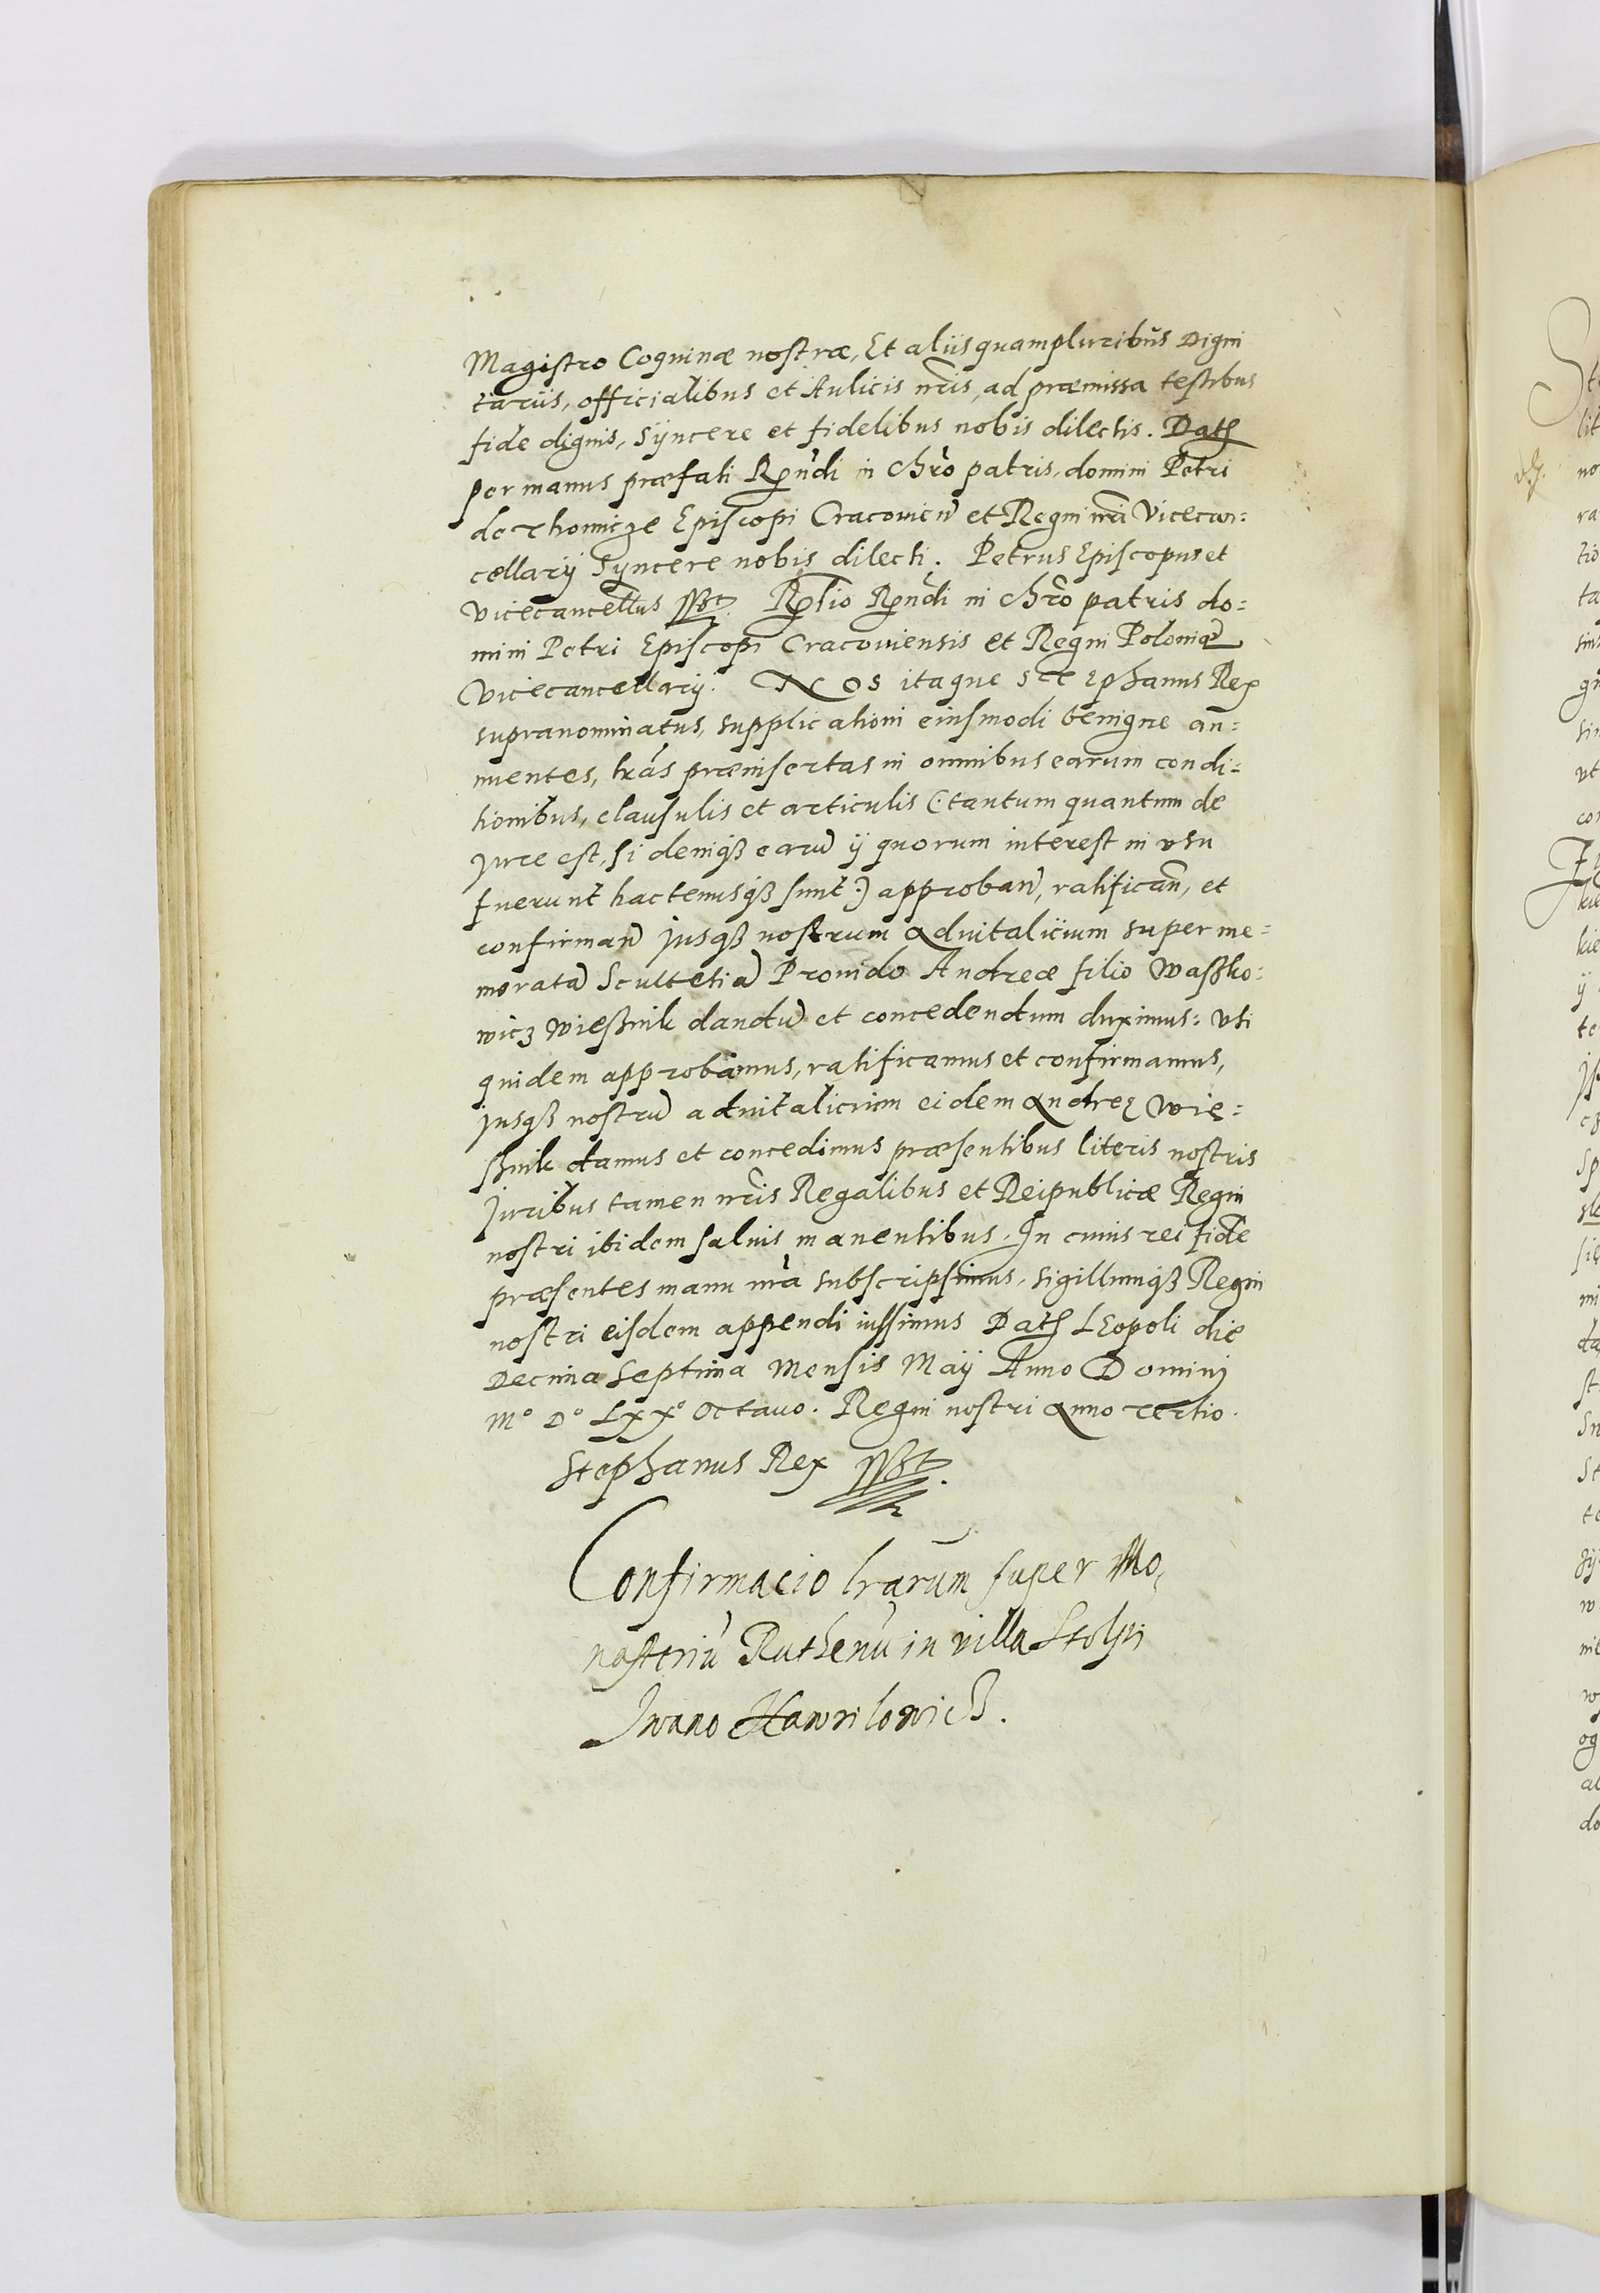 Magistro Coquinæ nostræ, Et aliis quampluribus Digni
tariis, officialibus et Aulicis nris, ad præmissa testibus
fide dignis, Syncere et fidelibus nobis dilectis. Dat
per manus præfati Rndi in Chro patris, domini Petri
de Thomicze Episcopi Cracovien et Regni nri Vicecan:
cellarÿ Syncere nobis dilecti. Petrus Episcopus et
Vicecancellus sst Rlio Rndi in Chro patris do:
mini Petri Episcopi Cracoviensis et Regni Poloniæ
Vicecancellarÿ. Nos itaque Stephanus Rex
supranominatus, supplicationi eiusmodi benigne an:
nuentes, lras præinsertas in omnibus earum condi:
tionibus, clausulis et articulis (: tantum quantum de
Jure est, si deniqȝ earu ÿ quorum interest in usu
fuerunt hactenusqȝ sunt :) approban, ratifican, et
confirman jusqȝ nostrum advitalicium super me:
morata Scultetia Provido Andreæ filio Waszko:
wicz Wiesznik dandu et concedendum duximus: Uti
quidem approbamus, ratificamus et confirmamus,
jusqȝ nostru advitalicium eidem Andreę Wię:
sznik damus et concedimus præsentibus literis nostris
Juribus tamen nris Regalibus et Reipublicæ Regni
nostri ibidem salvis manentibus. In cuius rei fide
præsentes manu nra subscripsimus, sigillumqȝ Regni
nostri eisdem appendi iussimus Dat Leopoli die
Decima Septima Mensis Maÿ Anno Dominj
Mº Dº Lxxº Octavo. Regni nostri Anno Tertio.
Stephanus Rex sst
Confirmacio lrarum super Mo,
nasteriu Ruthenu in villa Stolpi
Jwano Hawrilowicz.